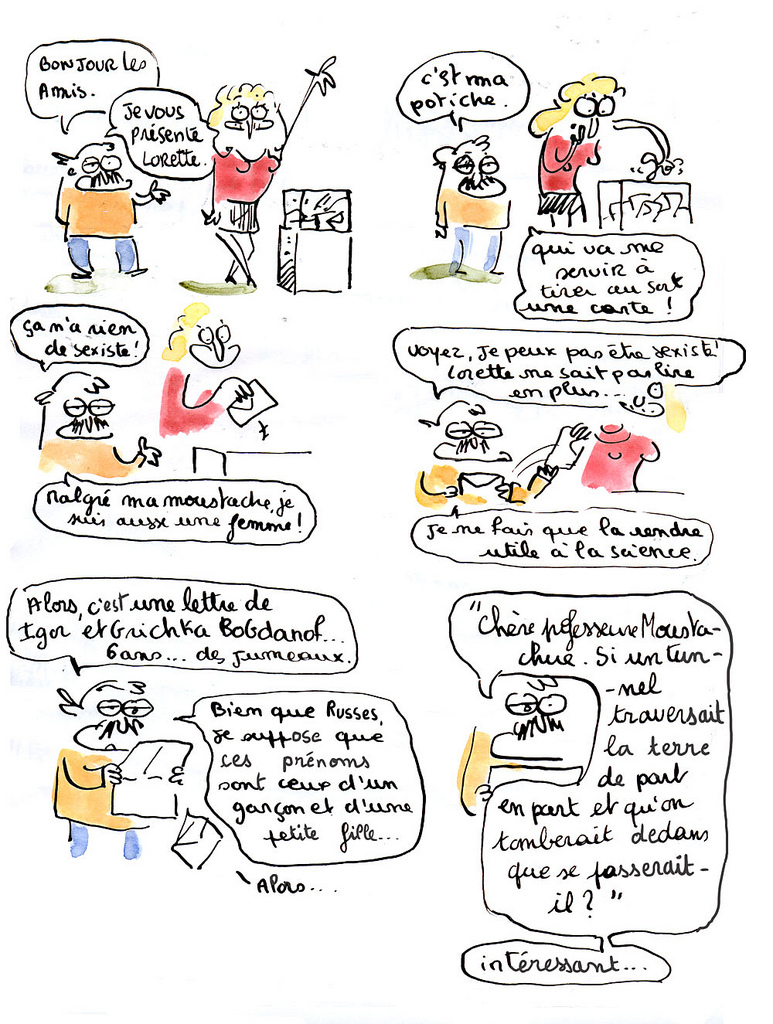 Bonjour les
Amis.
Je vous
présente
Lorette.
c'est ma
potiche.
qui va me
servir à
tirer au sort
une carte !
ça n'a rien
de sexiste !
Malgré ma moustache, je
suis aussi une femme !
Voyez, je peux pas être sexiste !
Lorette ne sait pas lire
en plus...
Je ne fais que la rendre
utile à la science.
Alors, c'est une lettre de
Igor et Grichka Bogdanof...
6 ans... des jumeaux.
Bien que Russes,
je suppose que
ces prénoms
sont ceux d'un
garçon et d'une
petite fille...
Alors....
"Chère professeure Mousta-
chue. Si un tun-
-nel
traversait
la terre
de part
en part et qu'on
tomberait dedans
que se passerait-
il ? "
intéressant...